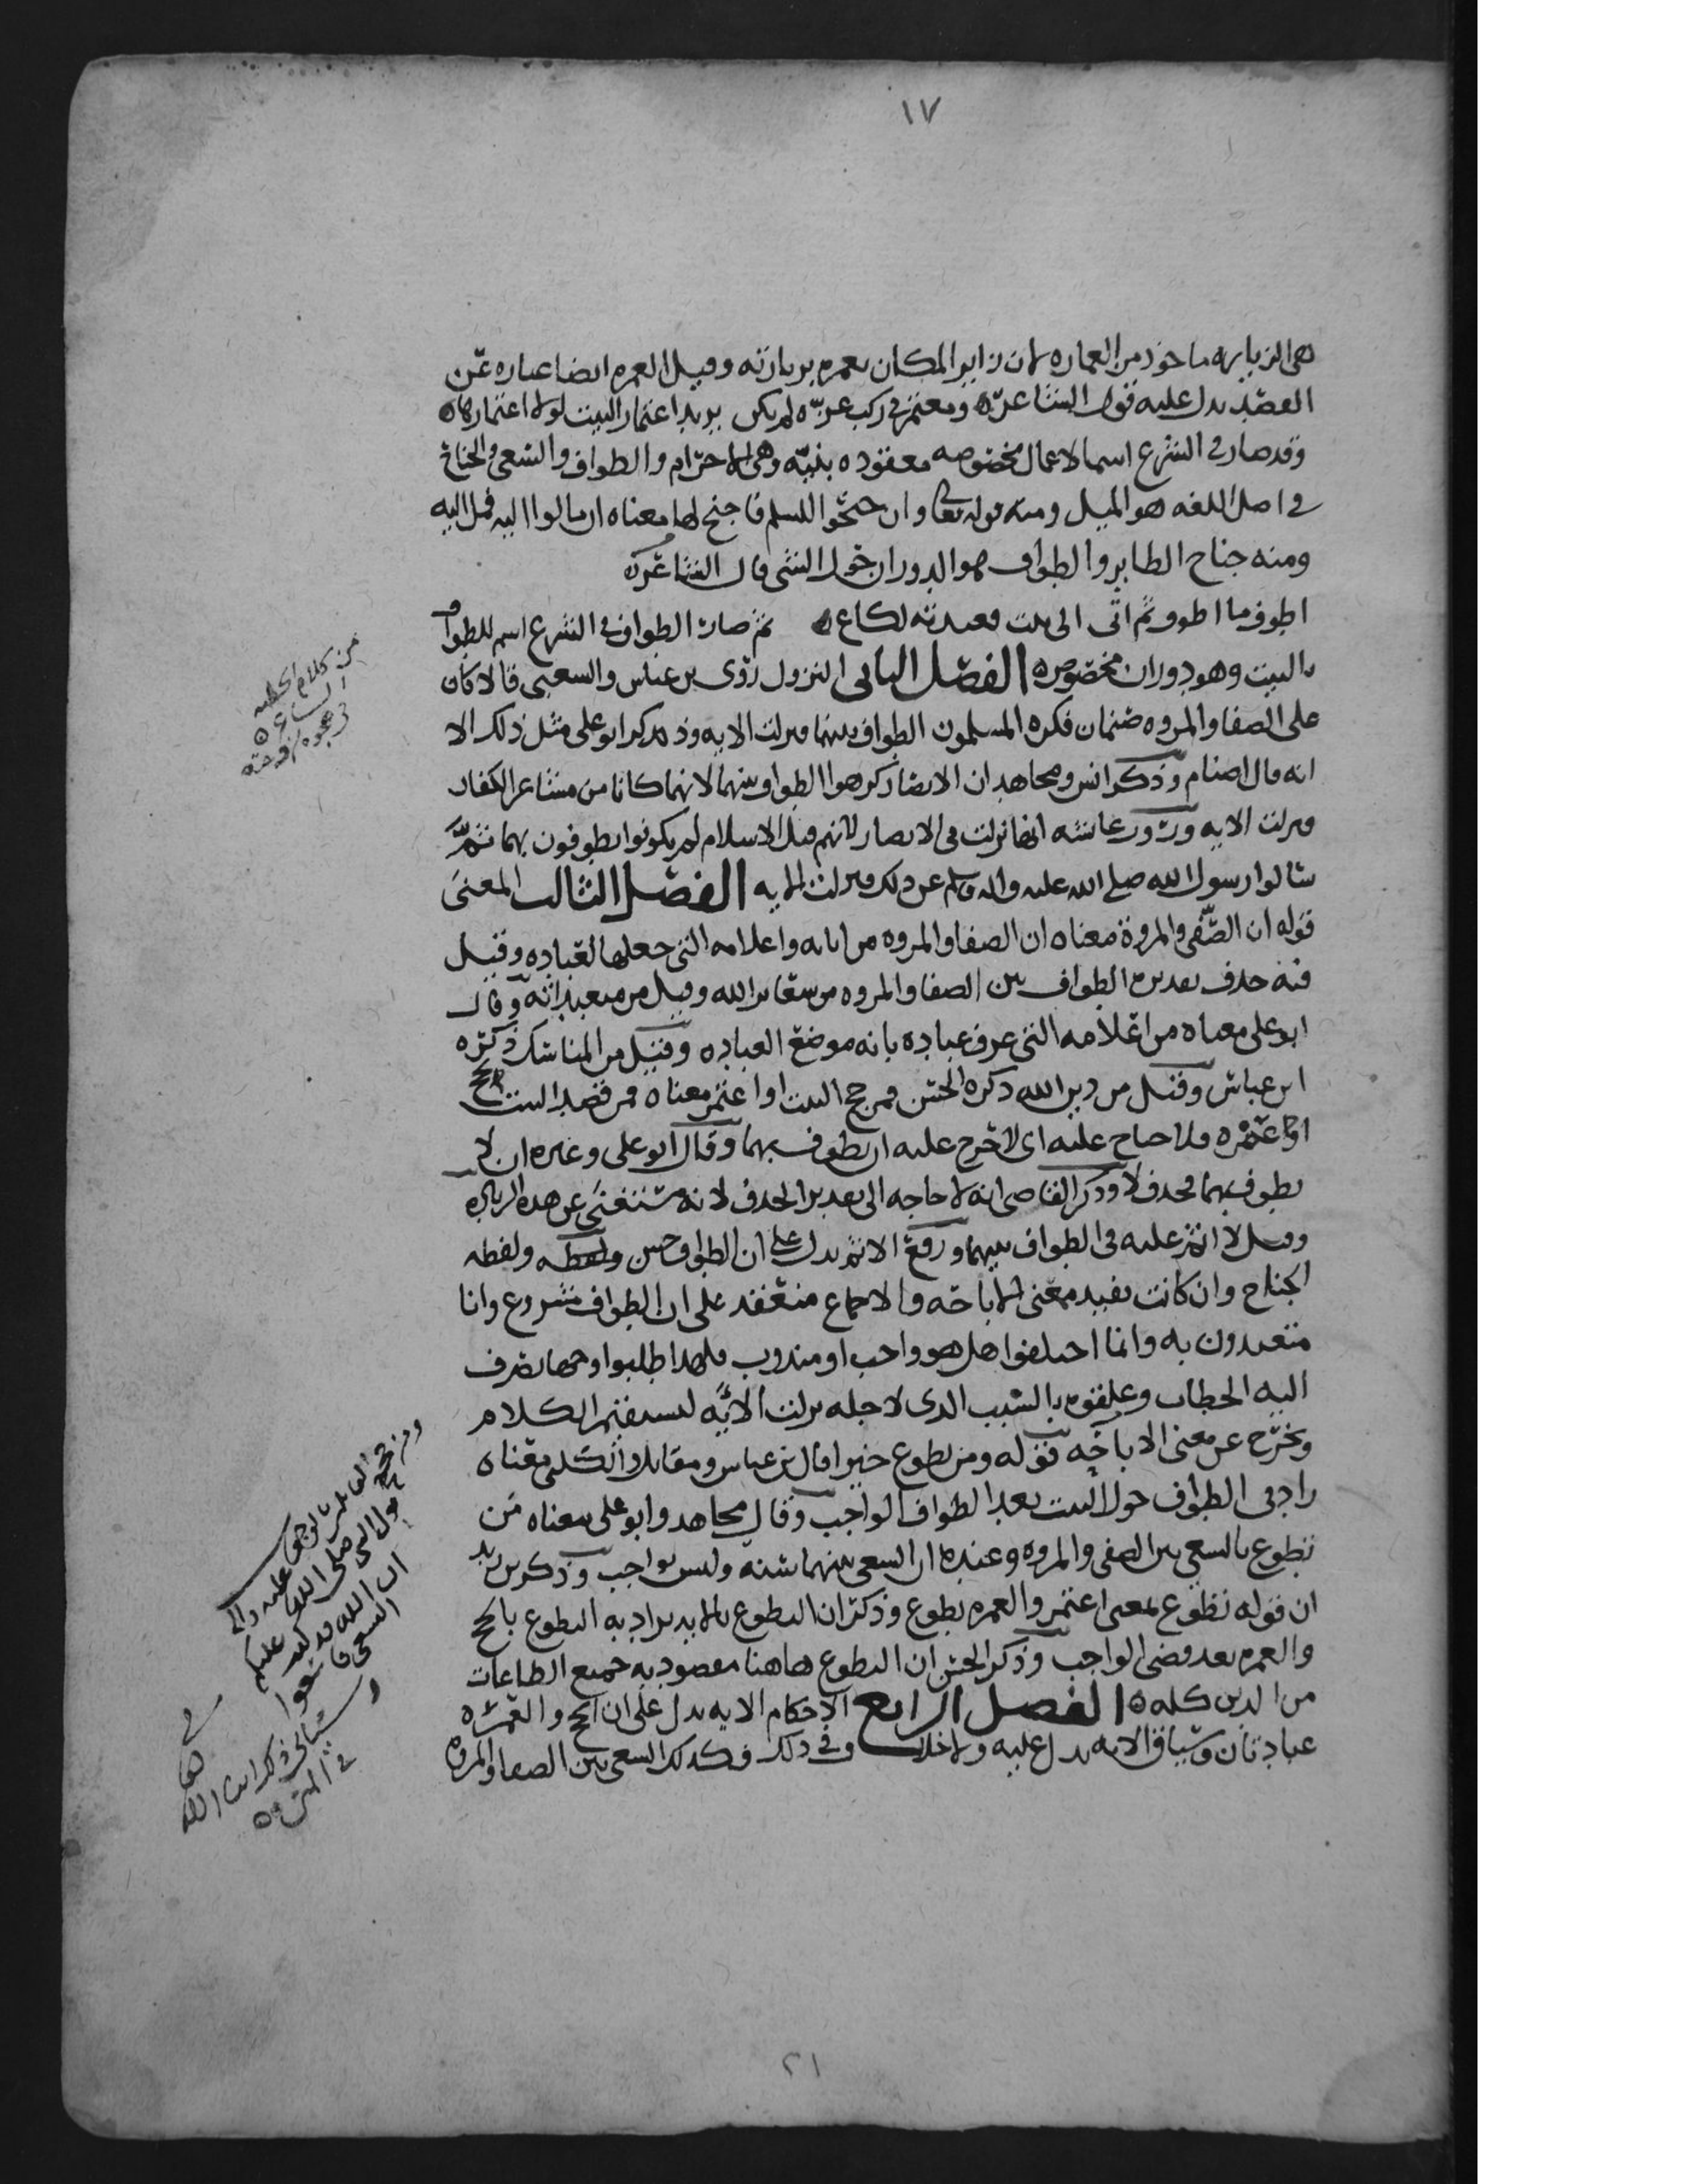 ١٧
هي الزيارة ماخوذ من العماره لان زاير المكان يعمره بزيارته وقيل العمره ايضا عباره عن
القصد يدل عليه قول الشاعر ومعتمر في ركب عزه لم يكن يريد اعتمار البيت لولا اعتمارها
وقد صار في الشرع اسما لاعمال مخصوصه معقوده بنيه وهي الاحرام والطواف والسعي والجناح
في اصل اللغه هو الميل ومنه قوله تعالى وان جنحوا للسلم فاجنح لها معناه ان مالوا اليه فمل اليه
ومنه جناح الطاير والطواف هو الدوران حول الشي قال الشاعر
اطوف ما اطوف ثم اتي الى بيت قعيدته لكاع ثم صار الطواف في الشرع اسم للطواف
بالبيت وهو دوران مخصوص الفصل الثاني النزول روى بن عباس والشعبي قالا كان
على الصفا والمروه صنمان فكره المسلمون الطواف بينهما فنزلت الايه وذكر ابو علي مثل ذلك الا
انه قال اصنام وذكر انس ومجاهد ان الانصار كرهوا الطواف بينهما لانهما كانا من مشاعر الكفار
فنزلت الايه وروت عائشه انها نزلت في الانصار لانهم قبل الاسلام لم يكونوا يطوفون بهما ثم
سالوا رسول الله صلى الله عليه واله وسلم عن ذلك فنزلت الايه الفصل الثالث المعنى
قوله ان الصفى والمروة معناه ان الصفا والمروه من اياته واعلامه التي جعلها لعباده وقيل
فيه حذف تقديره الطواف بين الصفا والمروه من شعاير الله وقيل من متعبداته وقال
ابو علي معناه من اعلامه التي عرف عباده بانه موضع العباده وقيل من المناسك ذكره
ابن عباس وقيل من دين الله ذكره الحسن فمن حج البيت او اعتمر معناه فمن قصد البيت بالحج
او اعتمره فلا جناح عليه اي لا حرج عليه ان يطوف بهما وقال ابو علي وغيره ان لا
يطوف بهما فحذف لا وذكر القاضي انه لا حاجه الى تقدير الحذف لانه مستغنى عن هذه الزياده
وقيل لا اثم عليه في الطواف بينهما ورفع الاثم يدل على ان الطواف حسن ولفظه
الجناح وان كانت تفيد معنى الاباحه والاجماع منعقد على ان الطواف مشروع وانا
متعبدون به وانما اختلفوا هل هو واجب او مندوب فلهذا طلبوا وجها يصرف
اليه الخطاب وعلقوه بالسبب الذي لاجله نزلت الايه ليستقيم الكلام
ويخرج عن معنى الاباحه قوله ومن تطوع خيرا قال بن عباس ومقاتل والكلبي معناه
زاد في الطواف حول البيت بعد الطواف الواجب وقال مجاهد وابو علي معناه من
تطوع بالسعي بين الصفى والمروه وعنده ان السعي بينهما سنه وليس بواجب وذكر بن زيد
ان قوله تطوع بمعنى اعتمر والعمره تطوع وذكر ان التطوع بالايه يراد به التطوع بالحج
والعمره بعد قضى الواجب وذكر الحسن ان التطوع هاهنا مقصود به جميع الطاعات
من الدين كله الفصل الرابع الاحكام الايه تدل على ان الحج والعمره
عبادتان وسياق الايه يدل عليه ولا خلاف في ذلك وكذلك السعي بين الصفا والمروه
من كلام الحطيه
الشاعر
في هجوه زوجته
النبي صلى الله عليه واله
ان الله قد كتب عليكم
السعي فاسعوا
٢١